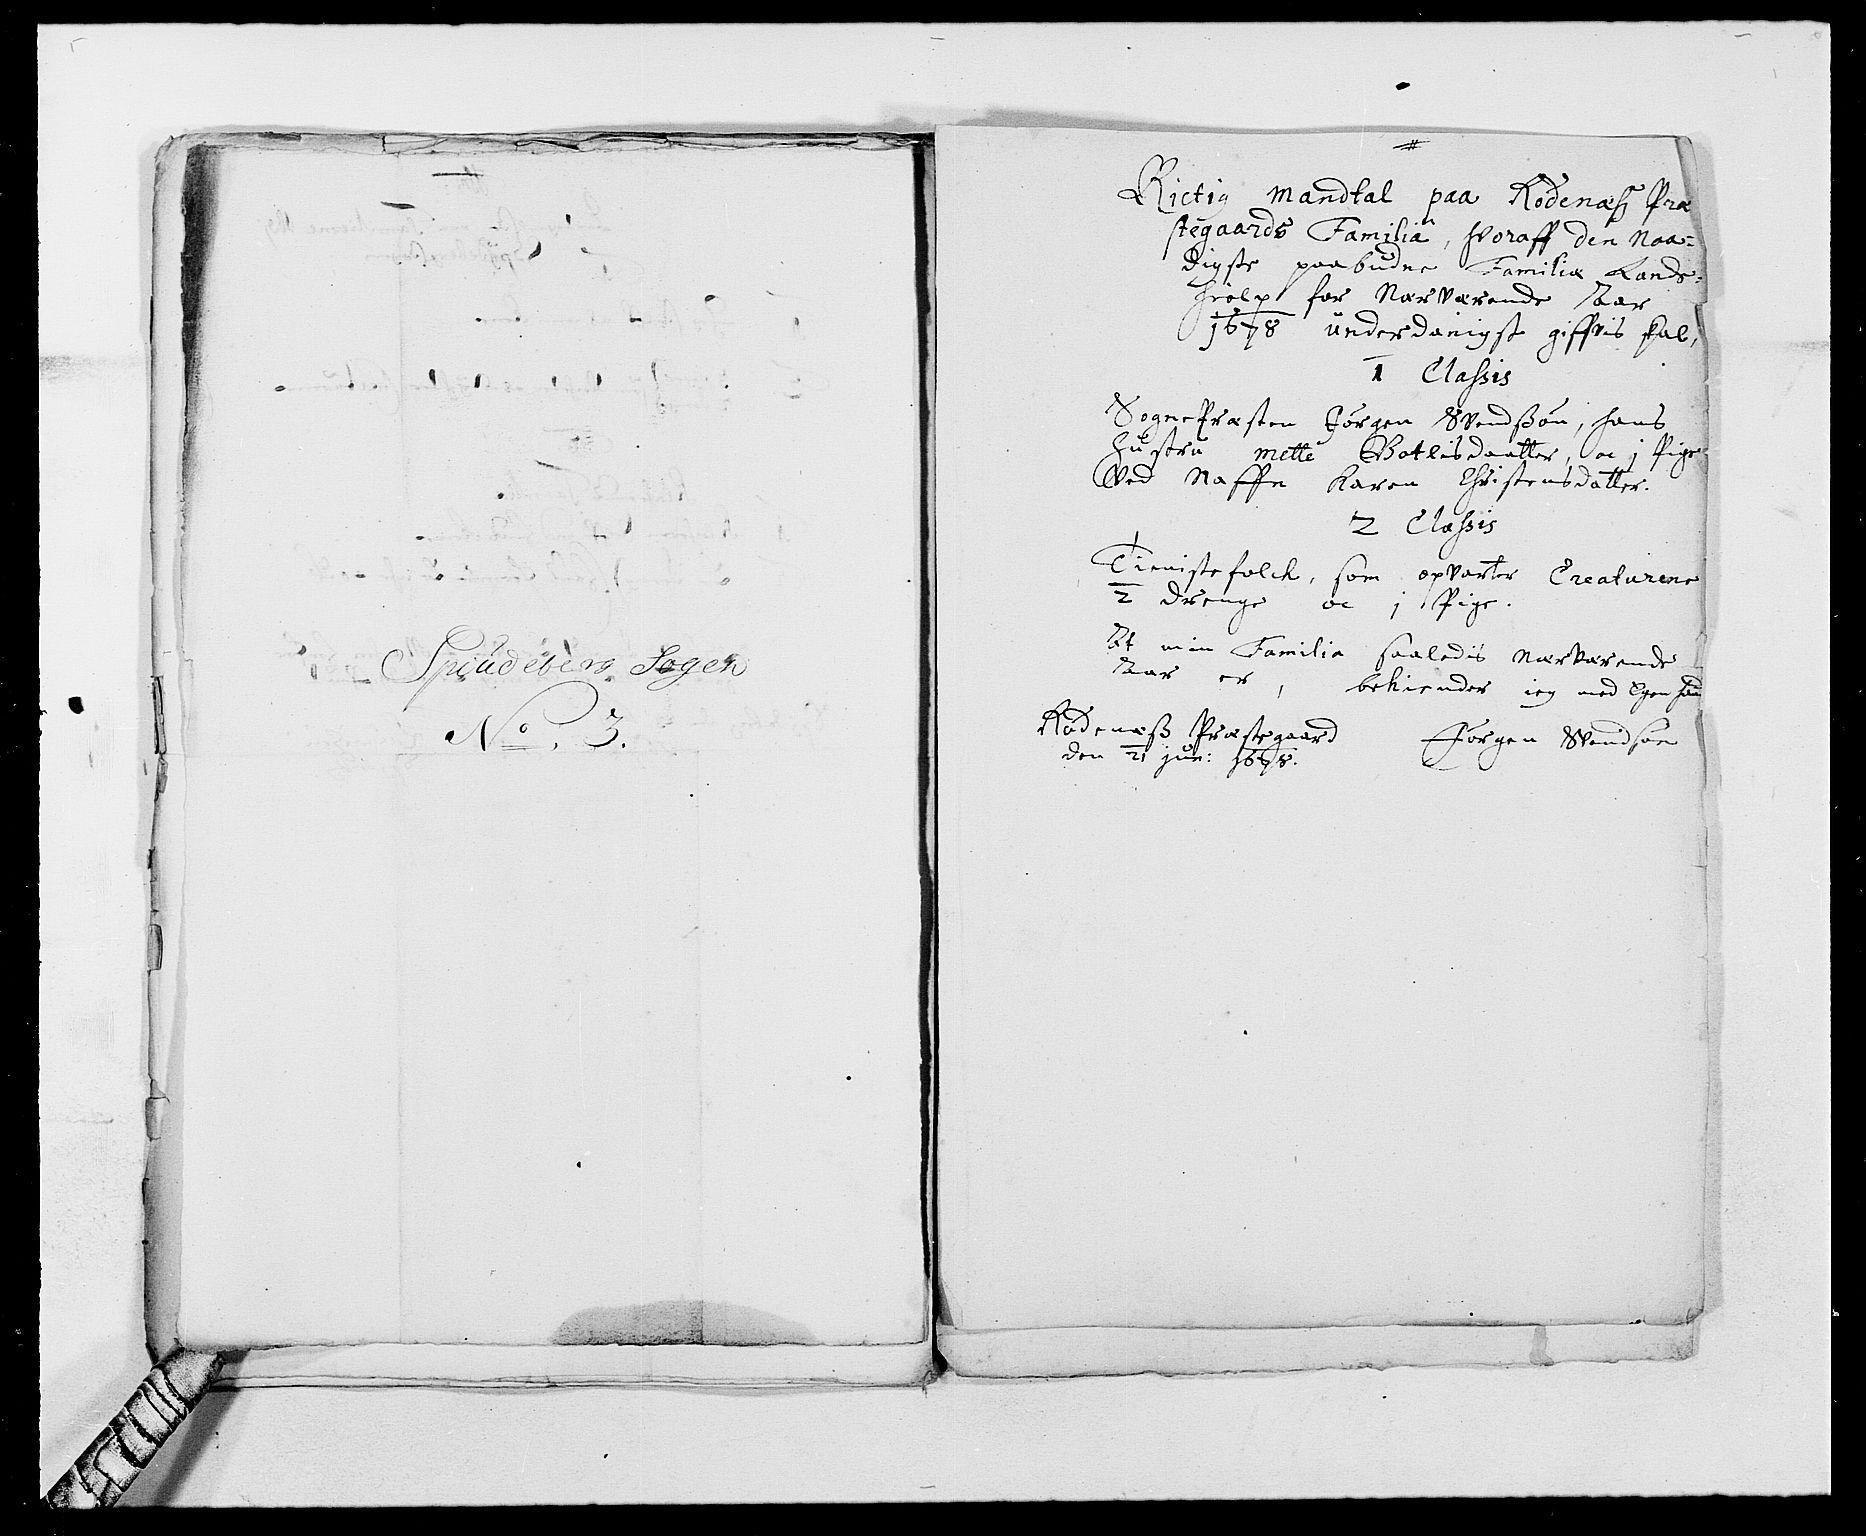 Spiudeberg Sogen
No. 3.
#
Rictig mandtal paa Rödenæß Præ
stegaards Familia, hvoraff den Naa=
digste paabudne Familiæ Lands=
hielp for Nærværende Aar
1678 underdanigst giffvis skal,
1 Classis
SognePræsten Jörgen Svendssøn, hans
hustru mette Botlisdaatter, oc j Pige
Ved Naffn Karen Christensdatter.
2 Classis
Tienistefolck, som opvarter Creaturene
2 drenge oc j Pige.
At min Familia saaledis nærværende
Aar er, bekiender ieg med Egen hånd
Rödenæß Præstegaard
den 21 jun: 1678.
Jörgen Svendsøn